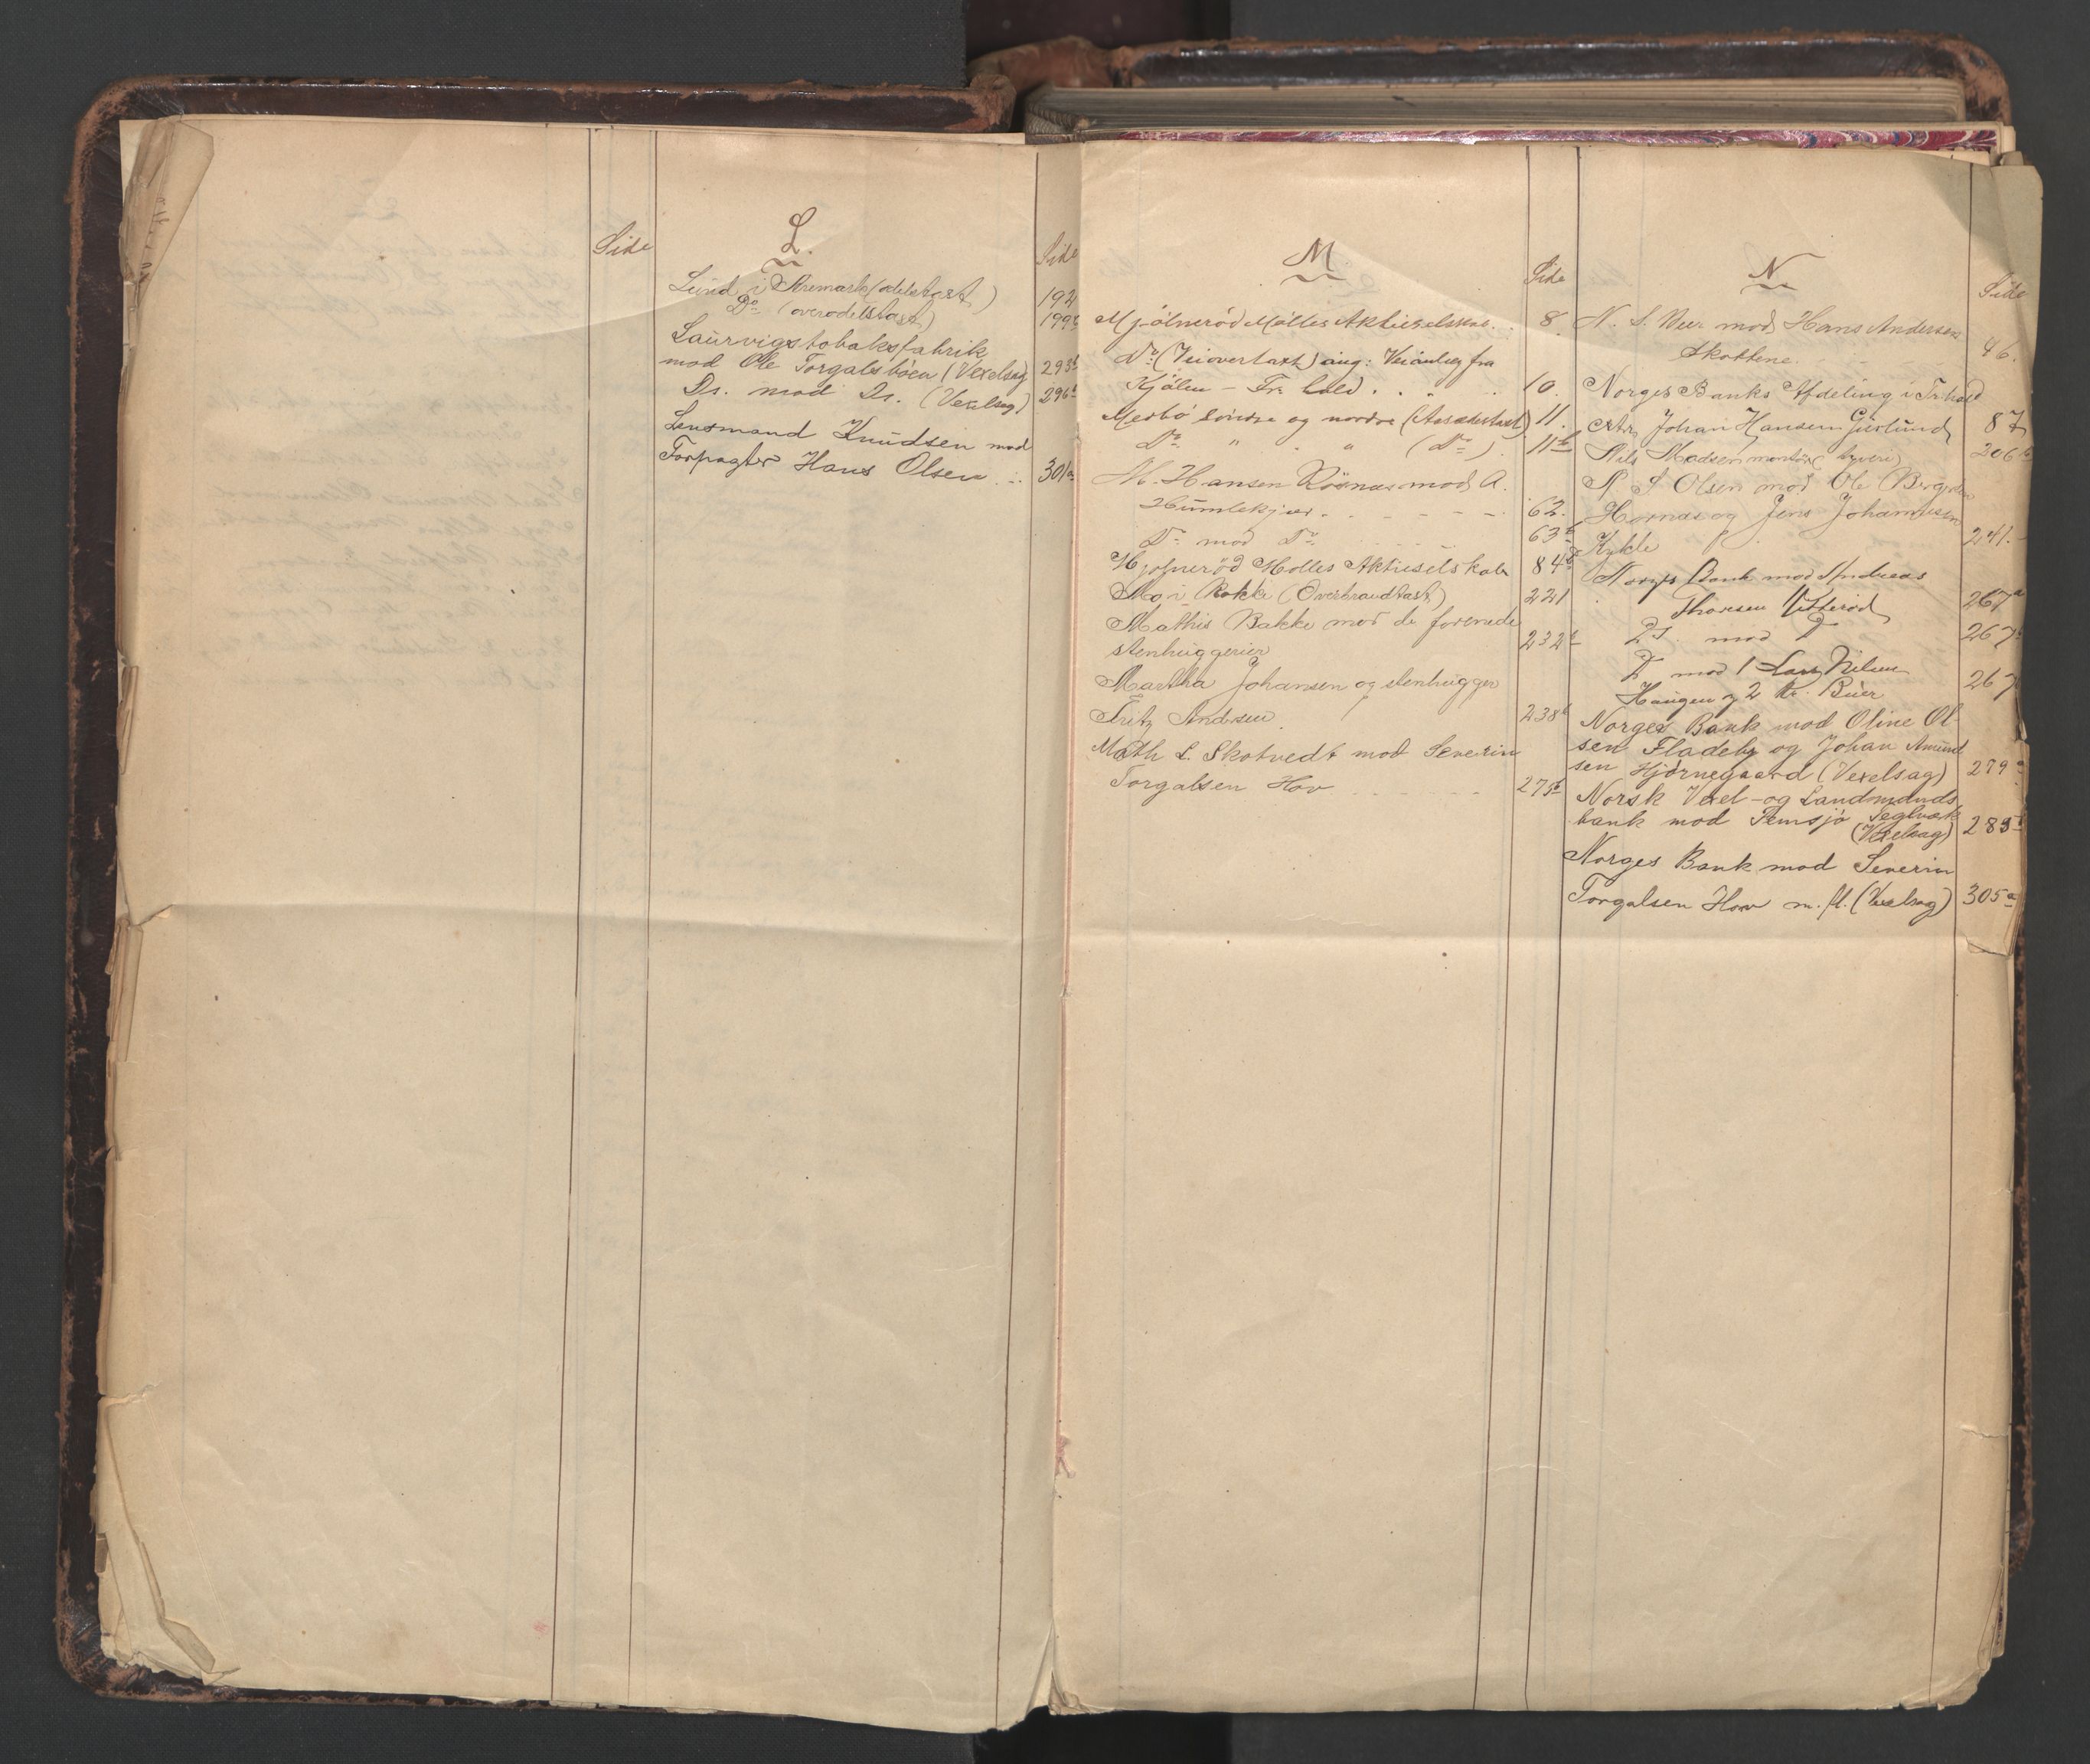 Side
L.
Side
Lund i Aremark (odelstaxt) 192
Do (overodelstaxt) 199b
Laurvigs tobaksfabrik
mod Ole Torgalsbøen (Vexelsag) 293b
Do. mod Do. (Vexelsag) 296b
Lensmand Knudsen mod
Forpagter Hans Olsen 301a
M.
Side
Mjölneröd Mölles Aktieselskab. 8.
Do (Veiovertaxt) ang: Veianlæg fra
Kjölen - Fr: hald 10.
Medbö söndre og nordre (Aasædestaxt) 11.
Do " " (Do) 11b
M. Hansen Rösnæs mod A.
Humlekjær 62.
Do mod Do 63b
Mjølnerød Mølles Aktieselskab 84b
Mo i Rokke (Overbrandtaxt) 221
Mathis Bakke mod de forenede
stenhuggerier 232b
Martha Johansen og stenhugger
Fritz Andersen 238b
Math L. Skotvedt mod Severin
Torgalsen Hov 275b
N
Side
N. S. Beer mod Hans Andersen
Skottene 46.
Norges Banks Afdeling i Fr:hald
ctr. Johan Hansen Gjerlund 87
Nils Madsen (tyveri) 206b
N S Olsen mod Ole Bergsten
Hornæs og Jens Johannesen
Kykle 241.
Norges Bank mod Andreas
Thoresen Vitterød 267a
Ds. mod D 267
D mod 1 Lars Nilsen
Haugen og 2 Kr. Buer 267
Norges Bank mod Oline Ol-
sen Fladeby og Johan Amund
sen Hjørnegaard (Vexelsag) 279a
Norsk Vexel- og Landmands
bank mod Femsjø Teglværk
(Vexelsag) 285b
Norges Bank mod Severin
Torgalsen Hov m. fl. (Vexelsag) 305a